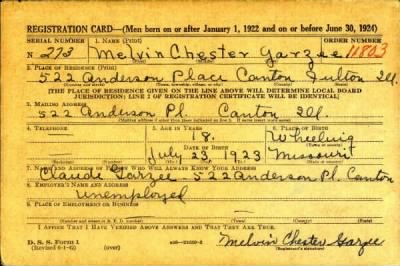 REGISTRATION CARD—(Men born on or after January 1, 1922 and on or before June 30, 1924)
SERIAL NUMBER 1. NAME (Print) ORDER NUMBER
N 273 Melvin Chester Garzee 11803
2. PLACE OF RESIDENCE (Print)
522 Anderson Place Canton Fulton Ill.
[THE PLACE OF RESIDENCE GIVEN ON THE LINE ABOVE WILL DETERMINE LOCAL BOARD
JURISDICTION; LINE 2 OF REGISTRATION CERTIFICATE WILL BE IDENTICAL]
3. MAILING ADDRESS
522 Anderson Pl. Canton Ill.
4. TELEPHONE 5. AGE IN YEARS 6. PLACE OF BIRTH
18. Wheeling
DATE OF BIRTH
July 23, 1923 Missouri
7. NAME AND ADDRESS OF PERSON WHO WILL ALWAYS KNOW YOUR ADDRESS
Claude Garzee - 522 Anderson Pl. Canton
8. EMPLOYER'S NAME AND ADDRESS
Unemployed
9. PLACE OF EMPLOYMENT OR BUSINESS
I AFFIRM THAT I HAVE VERIFIED ABOVE ANSWERS AND THAT THEY ARE TRUE.
D. S. S. Form 1
(Revised 6-1-42)
Melvin Chester Garzee
(Registrant's signature)